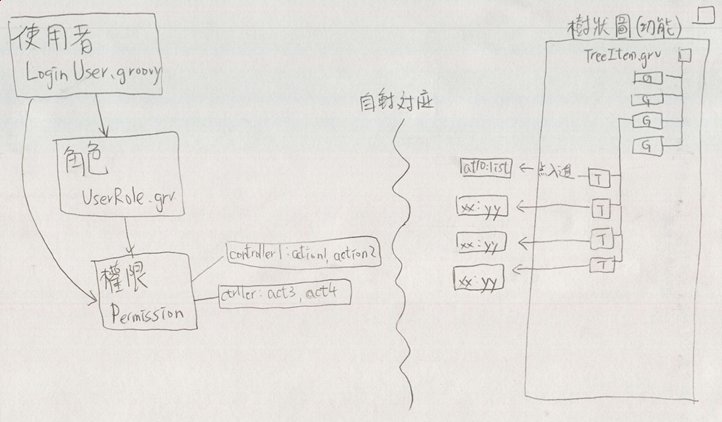 使用者
Login User.groovy
角色
UserRole.grv
權限
Permission
controller1:action1, action2
ctrller:act3, act4
自動对应
樹狀圖(功能)
TreeItem.grv
G
G
G
G
at10:list
点入選
T
xx:yy
T
xx:yy
T
xx:yy
T